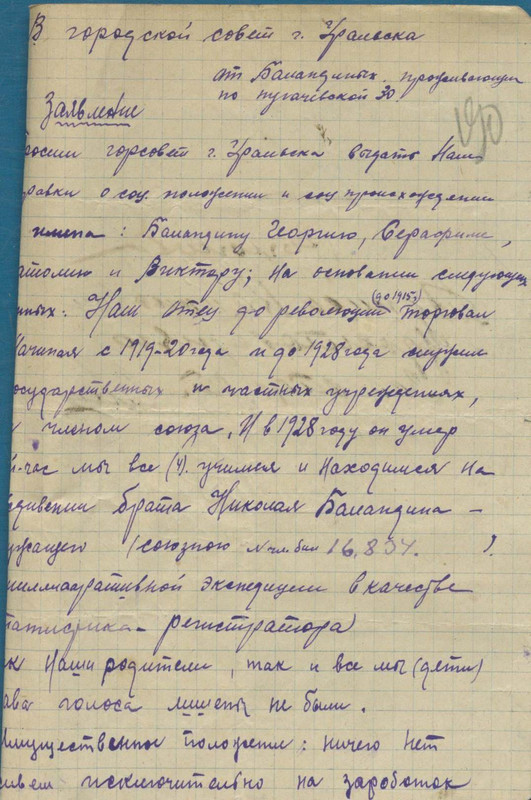 В городской совет г. Уральска
от Баландиных, проживающи
по пугачевской 30
190
Заявление
росим горсовет г. Уральска выдать Нам
равки о соц. положении и соц происхождении
имена: Баландину Георгию, Серафиме,
атолию и Виктару; на основании следующих
нных: Наш отец до революции (до 1915г) торговал
Начиная с 1919-20 года и до 1928 года служил
осударственных и частных учреждениях,
членом союза, И в 1928 году он умер
й-час мы все (ч). учимся и находимся на
ждивении брата Николая Баландина -
ужащего (союзною № чл. бил 16,834. ).
экспедиции в качестве
татистика - регистратора
к Наши родители, так и все мы (дети)
ава голоса лишены не были.
Имущественное положен: ничего нет
ивем исключительно на зароботок